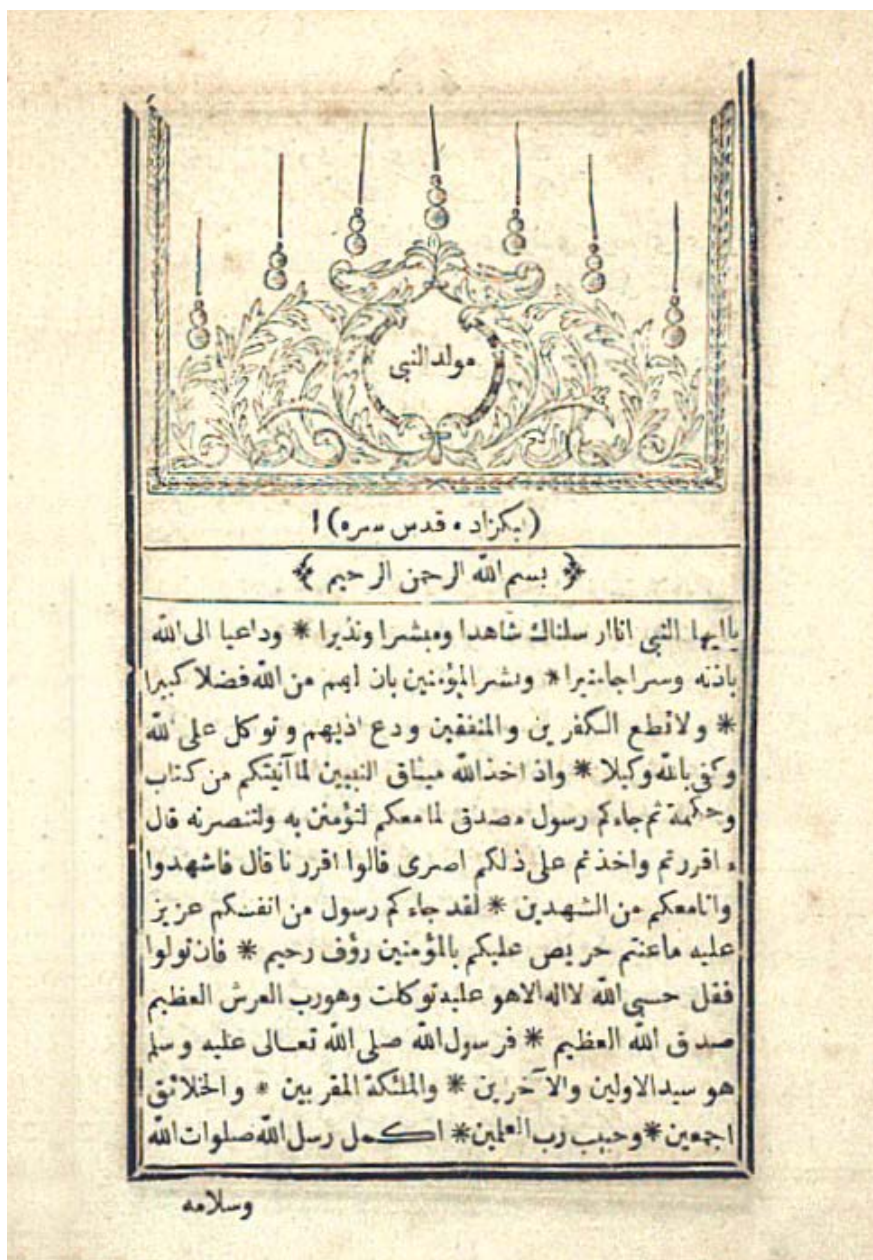 مولد النبى
(بكزاده قدس سره) ا
بسم الله الرحمن الرحيم
ياايها النبى اناار سلناك شاهدا ومبشرا ونذيرا * وداعيا الى الله
باذنه وسراجامنيرا * وبشر المؤمنين بان لهم من الله فضلا كبيرا
* ولاتطع الكفرين والمنفقين ودع اذيهم وتوكل على الله
وكفى بالله وكيلا * واذ اخذ الله ميثاق النبيين لما آتيتكم من كتاب
وحكمة ثم جاءكم رسول مصدق لما معكم لتؤمنن به ولتنصرنه قال
ء اقررتم واخذتم على ذلكم اصرى قالوا اقررنا قال فاشهدوا
وانا معكم من الشهدين * لقد جاءكم رسول من انفسكم عزيز
عليه ماعنتم حريص عليكم بالمؤمنين رؤف رحيم * فان تولوا
فقل حسبى الله لااله الاهو عليه توكلت وهورب العرش العظيم
صدق الله العظيم * فرسول الله صلى الله تعالى عليه وسلم
هو سيد الاولين والآخرين * والملئكة المقربين * والخلائق
اجمعين * وحبيب رب العلمين * اكمل رسل الله صلوات الله
وسلامه